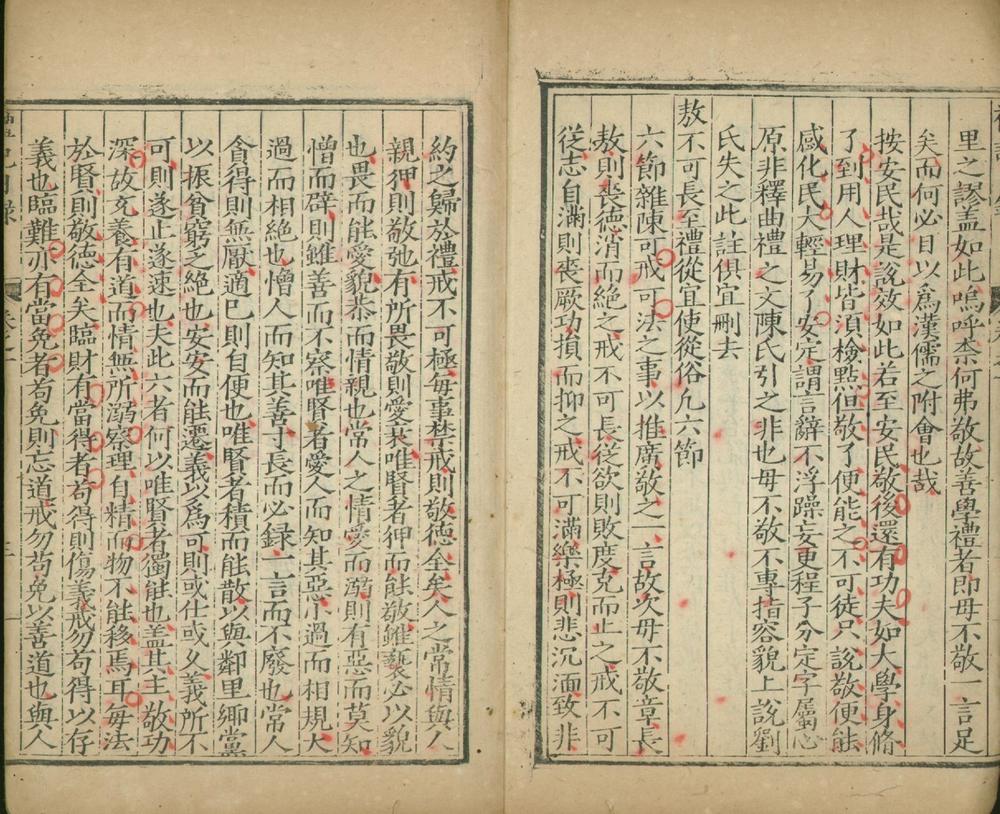 里之謬盖如此嗚呼柰何弗敬故善學禮者即毋不敬一言足
矣而何必目以爲漢儒之附會也哉
按安民哉是説效如此若至安民敬後還有功夫如大學身脩
了到用人理財皆湏檢㸃但敬了便能之不可徒只説敬便能
感化民大輕易了安定謂言辭不浮躁妄更程子分定字屬心
原非釋曲禮之文陳氏引之非也毋不敬不專指容貌上説劉
氏失之此註俱宜刪去
敖不可長至禮從宜使從俗凢六節
六節雜陳可戒可法之事以推廣敬之一言故次毋不敬章長
敖則丧德消而絶之戒不可長從欲則敗度克而止之戒不可
從志自滿則喪厥功損而抑之戒不可滿樂極則悲沉湎致非
約之歸於禮戒不可極毎事禁戒則敬德全矣人之常情與人
親狎則敬弛有所畏敬則愛衰唯賢者狎而能敬雖褻必以貌
也畏而能愛貌恭而情親也常人之情愛而溺則有惡而莫知
憎而辟則雖善而不察唯賢者愛人而知其惡小過而相規大
過而相絶也憎人而知其善寸長而必録一言而不廢也常人
貪得則無厭適巳則自便也唯賢者積而能散以與鄰里郷黨
以振貧窮之絶也安安而能遷義以爲可則或仕或久義所不
可則遂止遂速也夫此六者何以唯賢者獨能也盖其主敬功
深故充養有道而情無所溺察理自精而物不能移焉耳毎法
於賢則敬德全矣臨財有當得者苟得則傷義戒勿苟得以存
義也臨難亦有當免者苟免則忘道戒勿苟免以善道也與人